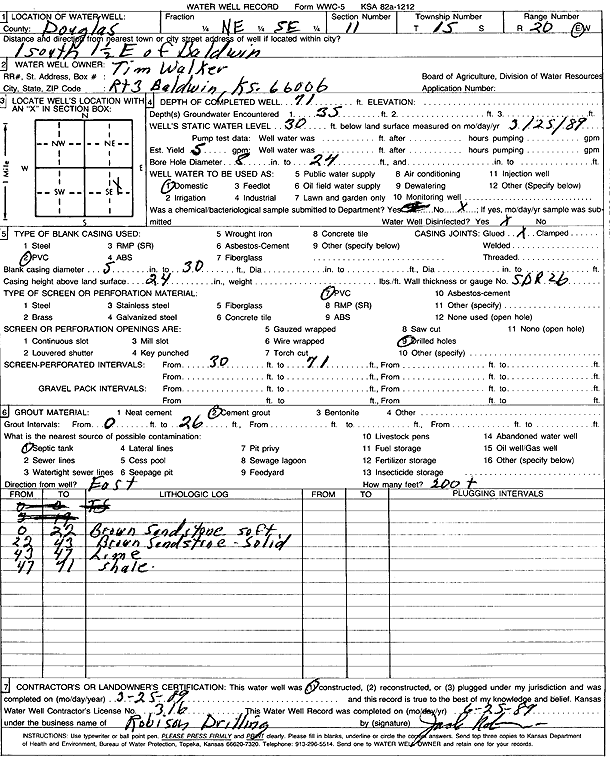 WATER WELL RECORD Form WWC-5 KSA 82a-1212
1 LOCATION OF WATER WELL: Fraction Section Number Township Number Range Number
County: Douglas ¼ NE ¼ SE ¼ 11 T 15 S R 20 E/W
Distance and direction from nearest town or city street address of well if located within city?
1 south 1½ E of Baldwin
2 WATER WELL OWNER: Tim Walker
RR#, St. Address, Box # : Board of Agriculture, Division of Water Resources
City, State, ZIP Code : Rt3 Baldwin, Ks. 66006 Application Number:
3 LOCATE WELL'S LOCATION WITH AN "X" IN SECTION BOX:
N
NW NE
W E
SW SE X
S
1 Mile
4 DEPTH OF COMPLETED WELL 71 ft. ELEVATION:
Depth(s) Groundwater Encountered 1. 35 ft. 2. ft. 3. ft.
WELL'S STATIC WATER LEVEL 30 ft. below land surface measured on mo/day/yr 3/25/89
Pump test data: Well water was ft. after hours pumping gpm
Est. Yield 5 gpm: Well water was ft. after hours pumping gpm
Bore Hole Diameter 8 in. to 24 ft., and in. to ft.
WELL WATER TO BE USED AS: 5 Public water supply 8 Air conditioning 11 Injection well
1 Domestic 3 Feedlot 6 Oil field water supply 9 Dewatering 12 Other (Specify below)
2 Irrigation 4 Industrial 7 Lawn and garden only 10 Monitoring well
Was a chemical/bacteriological sample submitted to Department? Yes No X; If yes, mo/day/yr sample was submitted Water Well Disinfected? Yes X No
5 TYPE OF BLANK CASING USED: 5 Wrought iron 8 Concrete tile CASING JOINTS: Glued X Clamped
1 Steel 3 RMP (SR) 6 Asbestos-Cement 9 Other (specify below) Welded
2 PVC 4 ABS 7 Fiberglass Threaded
Blank casing diameter 5 in. to 30 ft., Dia in. to ft., Dia in. to ft.
Casing height above land surface 24 in., weight lbs./ft. Wall thickness or gauge No. SDR 26
TYPE OF SCREEN OR PERFORATION MATERIAL: 7 PVC 10 Asbestos-cement
1 Steel 3 Stainless steel 5 Fiberglass 8 RMP (SR) 11 Other (specify)
2 Brass 4 Galvanized steel 6 Concrete tile 9 ABS 12 None used (open hole)
SCREEN OR PERFORATION OPENINGS ARE: 5 Gauzed wrapped 8 Saw cut 11 None (open hole)
1 Continuous slot 3 Mill slot 6 Wire wrapped 9 Drilled holes
2 Louvered shutter 4 Key punched 7 Torch cut 10 Other (specify)
SCREEN-PERFORATED INTERVALS: From 30 ft. to 71 ft., From ft. to ft.
From ft. to ft., From ft. to ft.
GRAVEL PACK INTERVALS: From ft. to ft., From ft. to ft.
From ft. to ft., From ft. to ft.
6 GROUT MATERIAL: 1 Neat cement 2 Cement grout 3 Bentonite 4 Other
Grout Intervals: From 0 ft. to 26 ft., From ft. to ft., From ft. to ft.
What is the nearest source of possible contamination: 10 Livestock pens 14 Abandoned water well
1 Septic tank 4 Lateral lines 7 Pit privy 11 Fuel storage 15 Oil well/Gas well
2 Sewer lines 5 Cess pool 8 Sewage lagoon 12 Fertilizer storage 16 Other (specify below)
3 Watertight sewer lines 6 Seepage pit 9 Feedyard 13 Insecticide storage
Direction from well? East How many feet? 200 +
FROM TO LITHOLOGIC LOG FROM TO PLUGGING INTERVALS
0 22 Brown Sandstone soft.
22 43 Brown Sandstroe - Solid
43 47 Lime
47 71 shale.
7 CONTRACTOR'S OR LANDOWNER'S CERTIFICATION: This water well was (1) constructed, (2) reconstructed, or (3) plugged under my jurisdiction and was
completed on (mo/day/year) 3-25-89 and this record is true to the best of my knowledge and belief. Kansas
Water Well Contractor's License No. 316 This Water Well Record was completed on (mo/day/yr) 6-25-89
under the business name of Robison Drilling by (signature)
INSTRUCTIONS: Use typewriter or ball point pen. PLEASE PRESS FIRMLY and PRINT clearly. Please fill in blanks, underline or circle the correct answers. Send top three copies to Kansas Department
of Health and Environment, Bureau of Water Protection, Topeka, Kansas 66620-7320. Telephone: 913-296-5514. Send one to WATER WELL OWNER and retain one for your records.